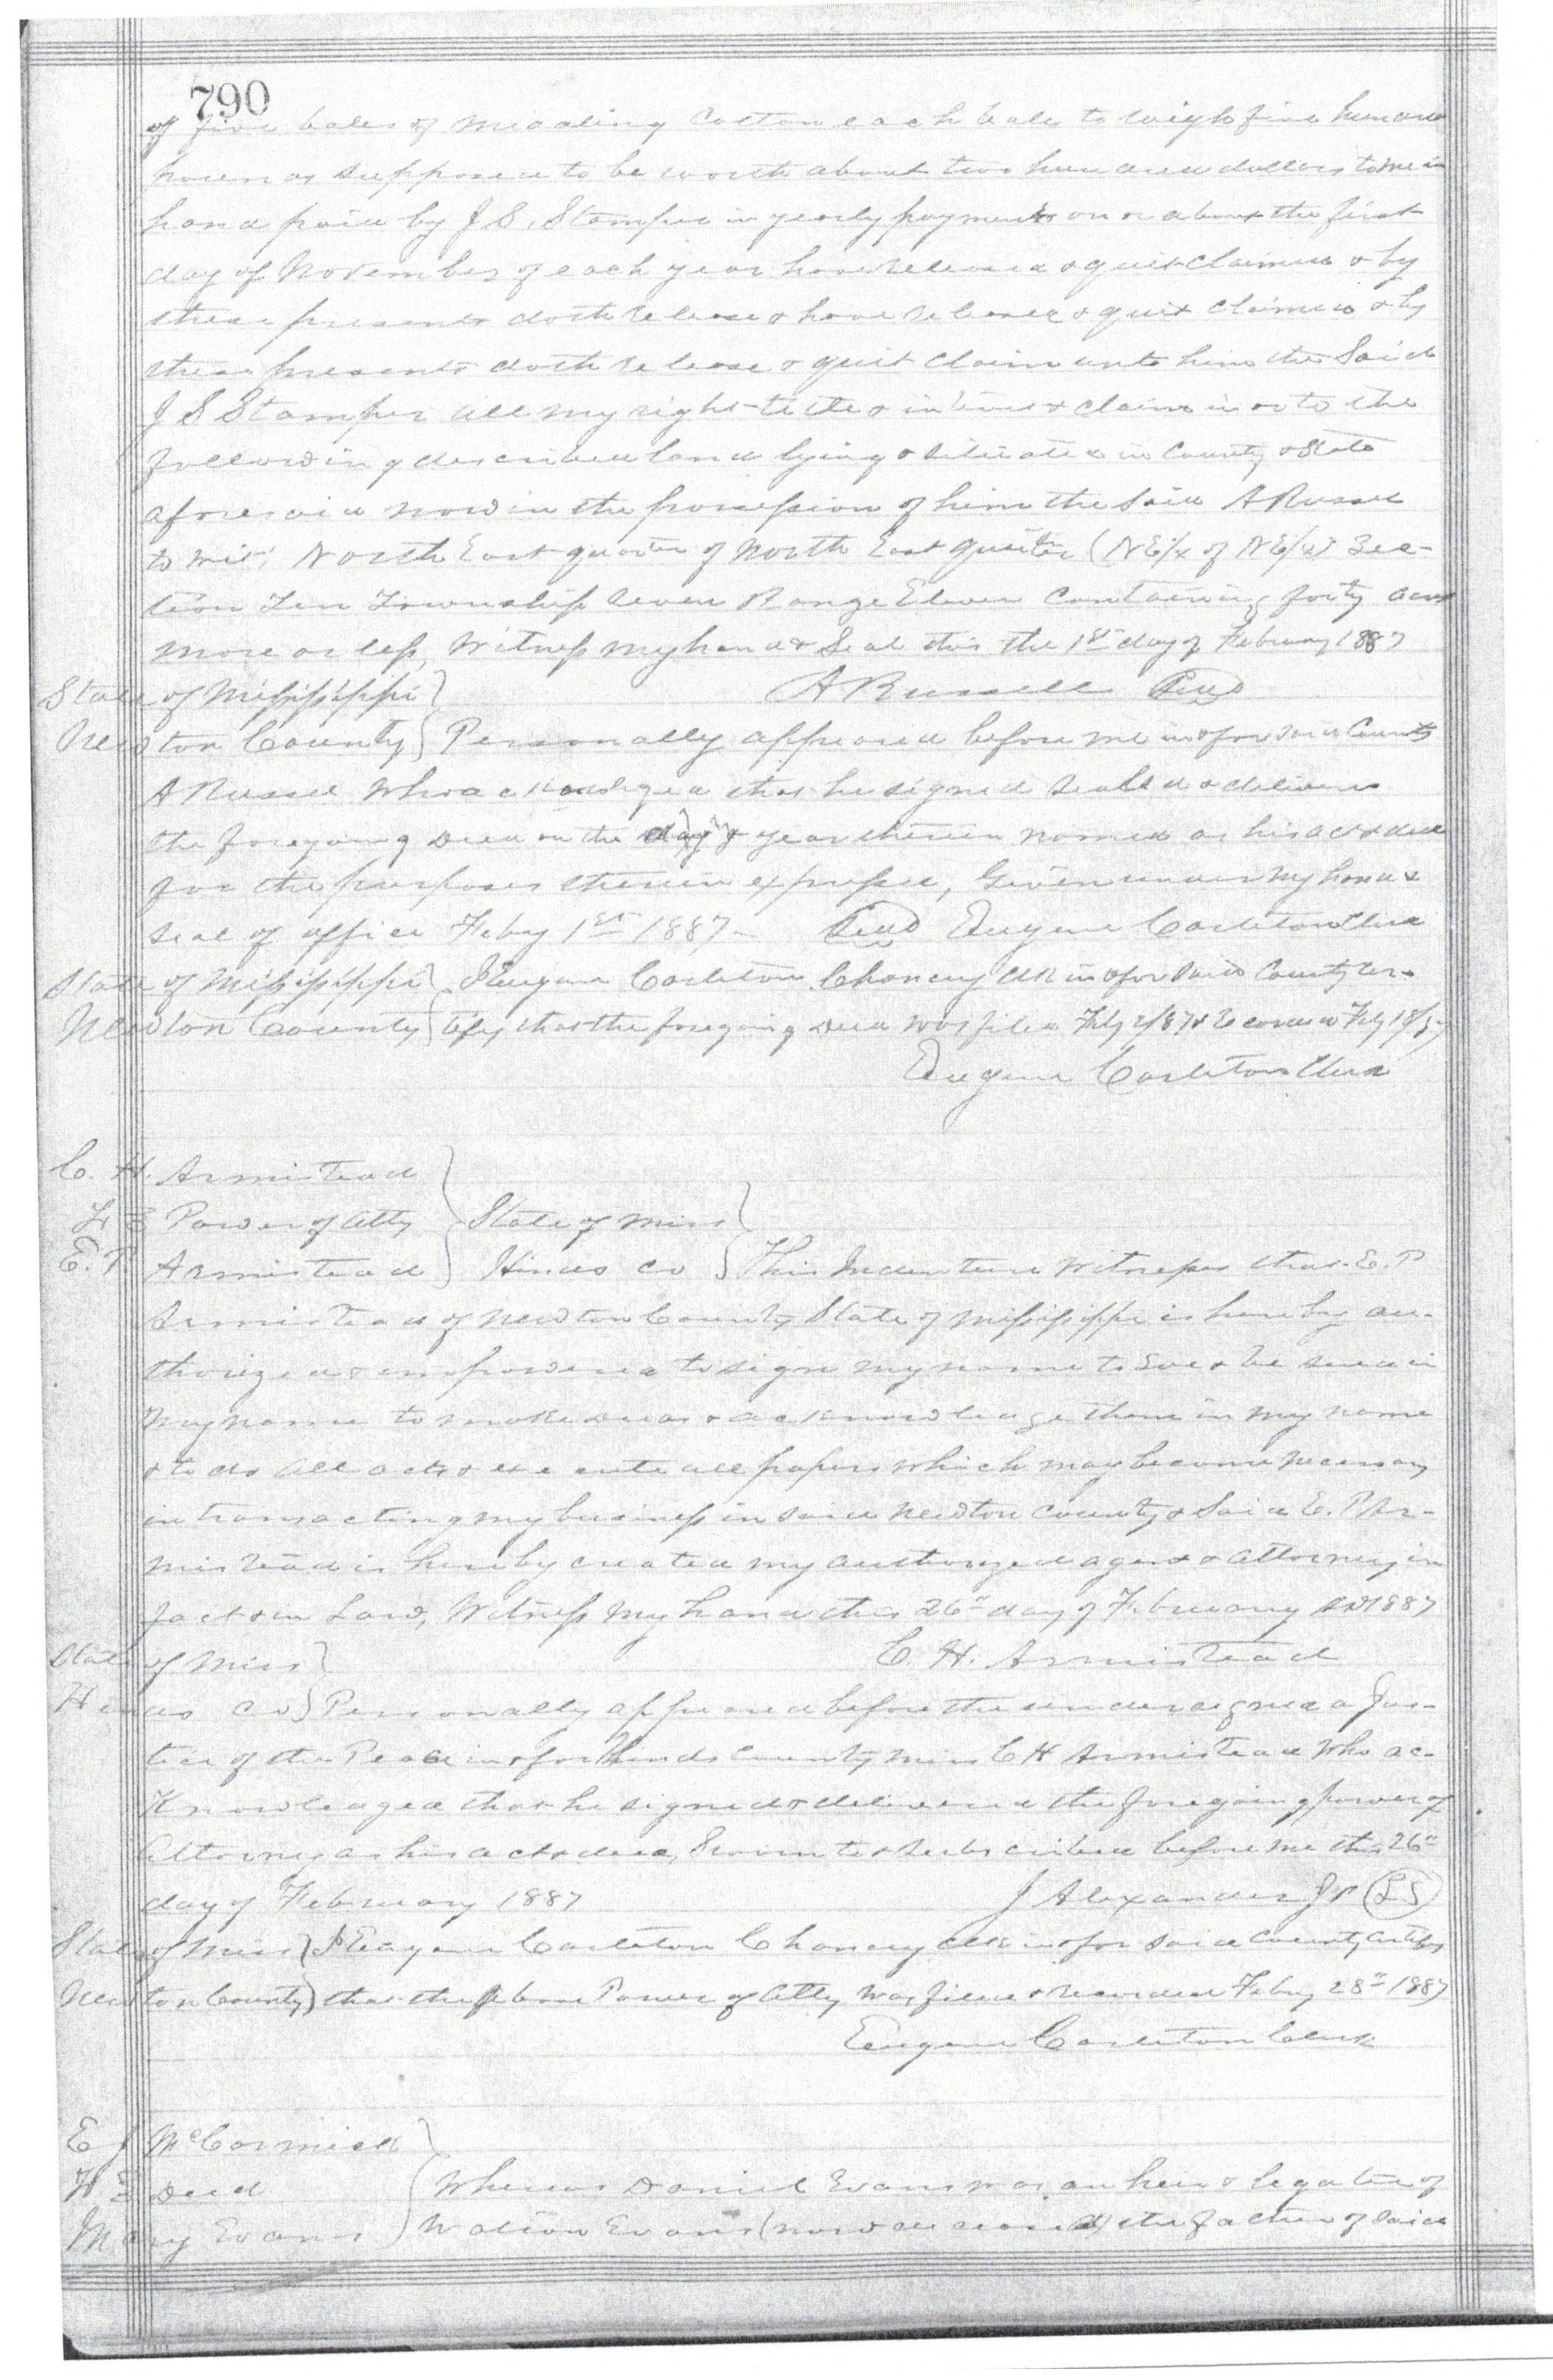 790
of five bales of middling Cotton each bale to weigh five hundred
pounds supposed to be worth about two hundred dollars to me in
hand paid by J S. Stamper in yearly payments on or about the first
day of November of each year have released & quit claimed & by
these presents doth release & have released & quit claimed & by
these presents doth release & quit claim unto him the Said
J S Stamper all my right title & interest & claim in or to the
following described land lying & situated in County & State
aforesaid now in the possession of him the Said A Russell
to wit: North East quarter of North East quarter (NE/4 of NE/4) Sec-
tion Ten Township Seven Range Eleven Containing forty acres
more or less, Witness my hand & Seal this the 1st day of February 1887
A Russell Seal
State of Mississippi
Newton County Personally appeared before me in & for said County
A Russell who acknowledged that he signed sealed & delivered
the foregoing deed on the day & year therein named as his act & deed
for the purposes therein expressed, Given under my hand &
seal of office Feby 1st 1887 Seal Eugene Carleton Clerk
State of Mississippi I Eugene Carleton Chancery Clk in & for Said County cer-
Newton County tify that the foregoing deed was filed Feby 2/87 & Recorded Feby 18/87
Eugene Carleton Clerk
C. H. Armistead
Power of Atty State of Miss
E. P. Armistead Hinds Co This Indenture Witnesses that E. P.
Armistead of Newton County State of Mississippi is hereby au-
thorized & empowered to sign my name to Sue & be sued in
my name to make deeds & acknowledge them in my name
& to do all acts & execute all papers which may become necessary
in transacting my business in said Newton County & Said E. P Ar-
mistead is hereby created my authorized agent & attorney in
fact & in Law, Witness my hand this 26th day of February AD 1887
C. H. Armistead
State of Miss
Hinds Co Personally appeared before the undersigned a Jus-
tice of the Peace in & for Hinds County Miss C H Armistead who ac-
knowledged that he signed & delivered the foregoing power of
Attorney as his act & deed, Sworn to & subscribed before me this 26th
day of February 1887 J Alexander JP LS
State of Miss I Eugene Carleton Chancery Clk in & for said County certify
Newton County that the above Power of Atty was filed & recorded Feby 28th 1887
Eugene Carleton Clerk
E J McCormick
Deed Whereas Daniel Evans was an heir & legatee of
Mary Evans Walton Evans (now deceased) the father of said